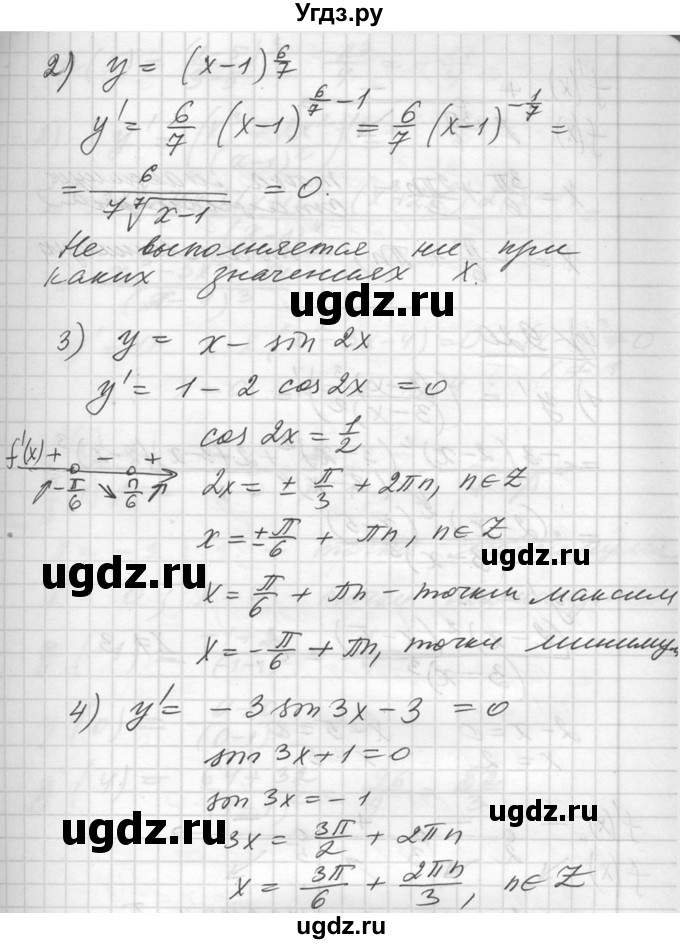 Угдз.ру
2) y = (x-1)^{6/7}
y' = 6/7 (x-1)^{6/7 - 1} = 6/7 (x-1)^{-1/7} =
= 6/(7 ⁷√(x-1)) = 0.
Не выполняется ни при
каких значениях x.
ugdz.ru
3) y = x - sin 2x
y' = 1 - 2 cos 2x = 0
cos 2x = 1/2
f'(x) + - +
-π/6 π/6
2x = ± π/3 + 2πn, n∈Z
x = ± π/6 + πn, n∈Z
ugdz.ru
ugdz.ru
x = π/6 + πn - точки максим
x = -π/6 + πn, точки миниму
4) y' = -3 sin 3x - 3 = 0
sin 3x + 1 = 0
sin 3x = -1
ugdz.ru
ugdz.ru
3x = 3π/2 + 2πn
x = 3π/6 + 2πn/3, n∈Z
ugdz.ru